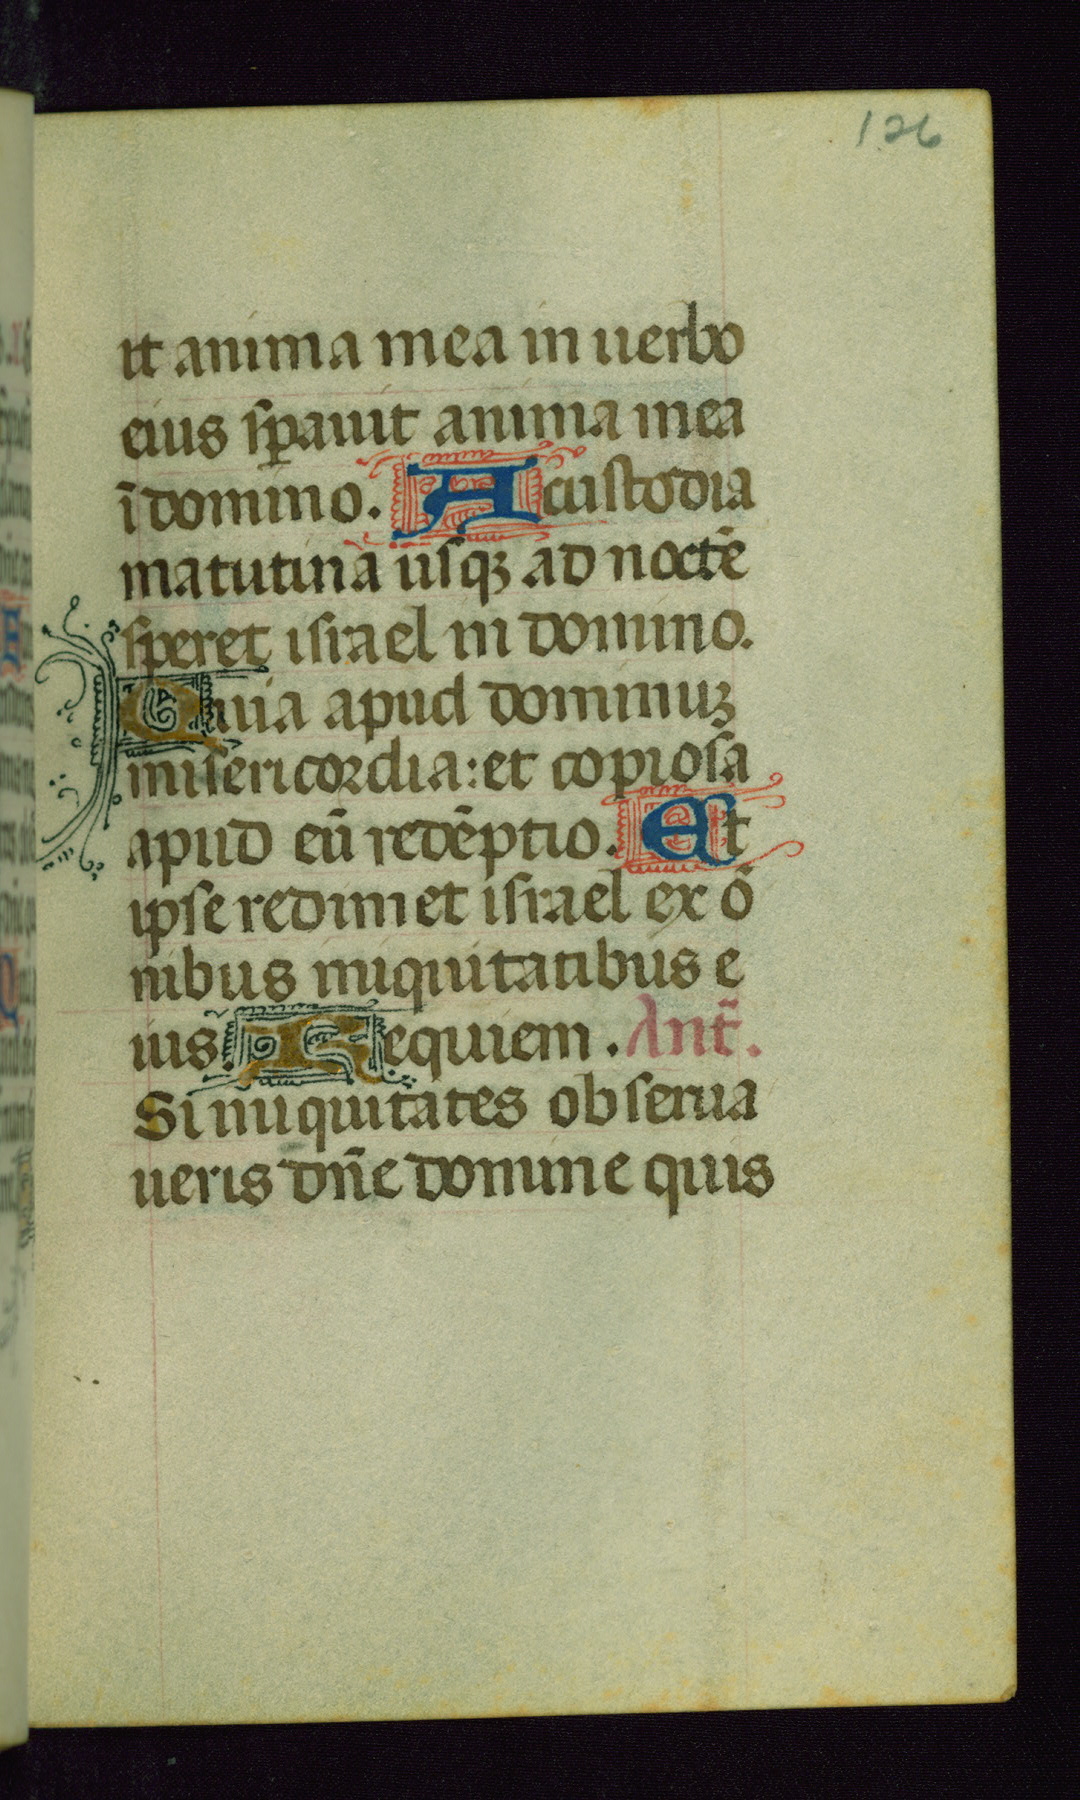 126
it anima mea in uerbo
eius sꝑauit anima mea
ī domino. A custodia
matutina usqꝫ ad noctē
speret israel in domino.
Quia apud dominuꝫ
misericordia: et copiosa
apud eū redēptio. Et
ipse redimet israel ex ō
nibus iniquitatibus e
ius. Requiem. Ant̄.
Si iniquitates obserua
ueris dn̄e domine quis